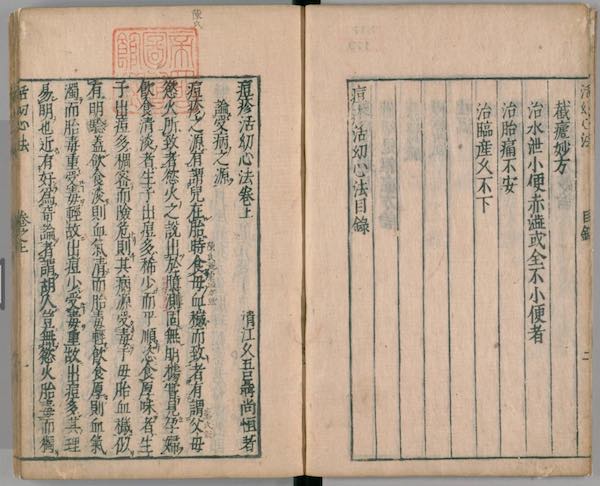 活幼心法 目錄 二
截瘧妙方
治水泄小便赤澁或全不小便者
治胎痛不安
治臨産久不下
痘疹活幼心法目錄
痘疹活幼心法卷上
清江久吾聶尚恒著
論受病之源
痘疹之源有謂兒在胎時食母血穢而致者有謂父母
慾火所致者慾火之說出於臆測固無明據嘗見孕婦
飲食清淡者生子出痘多稀少而平順恣食厚味者生
子出痘多稠密而險危則其病源受毒于母胎血穢似
有明驗蓋飲食淡則血氣清而胎毒輕飲食厚則血氣
濁而胎毒重受毒輕故出痘少受毒重故出痘多其理
易明也近有好為高論者謂胡人豈無慾火胎毒而獨
活幼心法 卷之上 一